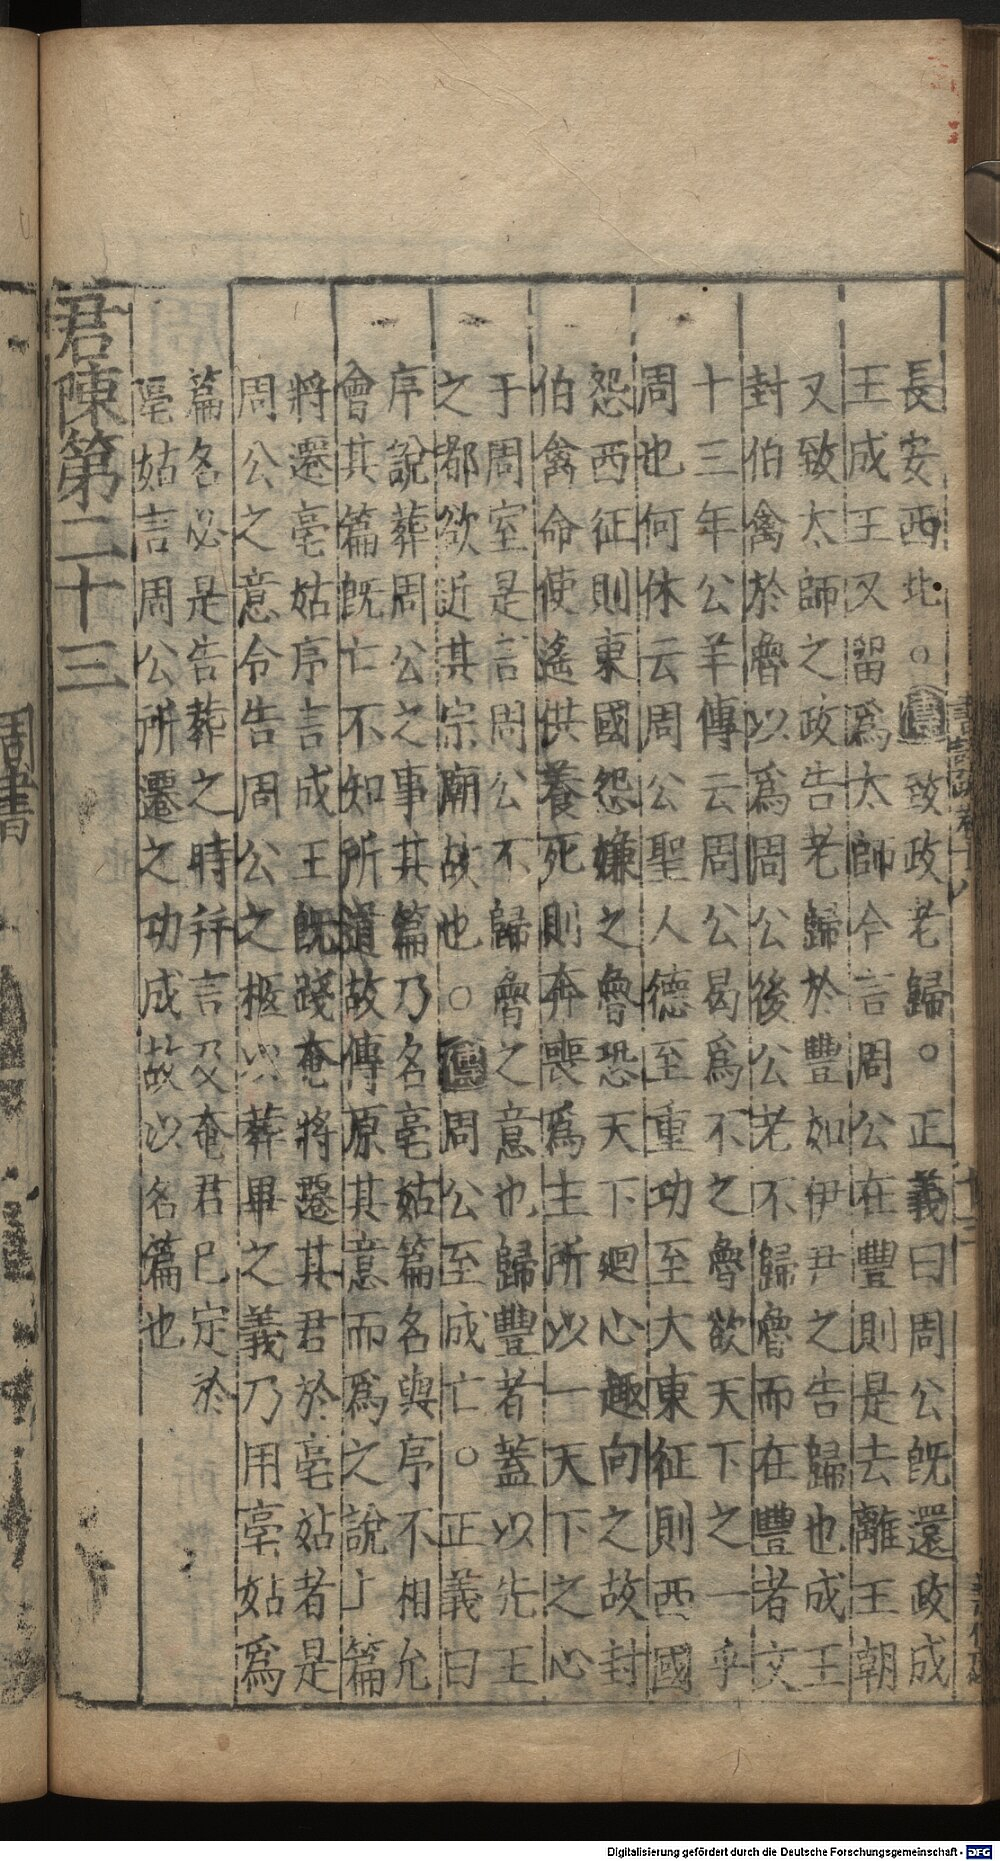 長安西北○傳致政老歸○正義曰周公旣還政成
王成王又留爲太師今言周公在豐則是去離王朝
又致太師之政告老歸於豐如伊尹之告歸也成王
封伯禽於魯以爲周公後公老不歸魯而在豐者文
十三年公羊傳云周公曷爲不之魯欲天下之一乎
周也何休云周公聖人德至重功至大東征則西國
怨西征則東國怨嫌之魯恐天下廻心趣向之故封
伯禽命使遙供養死則奔喪爲主所以一天下之心
于周室是言周公不歸魯之意也歸豐者蓋以先王
之都欲近其宗廟故也○傳周公至成亡○正義曰
序說葬周公之事其篇乃名亳姑篇名與序不相允
會其篇旣亡不知所道故傳原其意而爲之說上篇
將遷亳姑序言成王旣踐奄將遷其君於亳姑者是
周公之意令告周公之柩以葬畢之義乃用亳姑爲
篇名必是告葬之時幷言及奄君已定於
亳姑言周公所遷之功成故以名篇也
君陳第二十三
周書
Digitalisierung gefördert durch die Deutsche Forschungsgemeinschaft - DFG